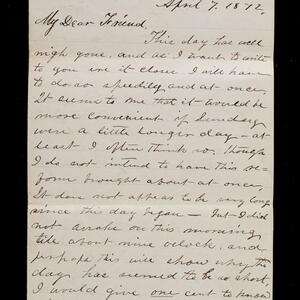 April 7. 1872.
My Dear Friend.
This day has well
nigh gone, and as I want to write
to you ere it close, I will have
to do so speedily and at once.
It seems to me that it would be
more convenient if Sunday
were a little longer day - at
least I often think so. Though
I do not intend to have this re-
form brought about at once,
It does not appear to be very long
since this day began - but I did
not awake on this morning
till about nine oclock, and
perhaps this will show why the
day has seemed to be so short.
I would give one cent to